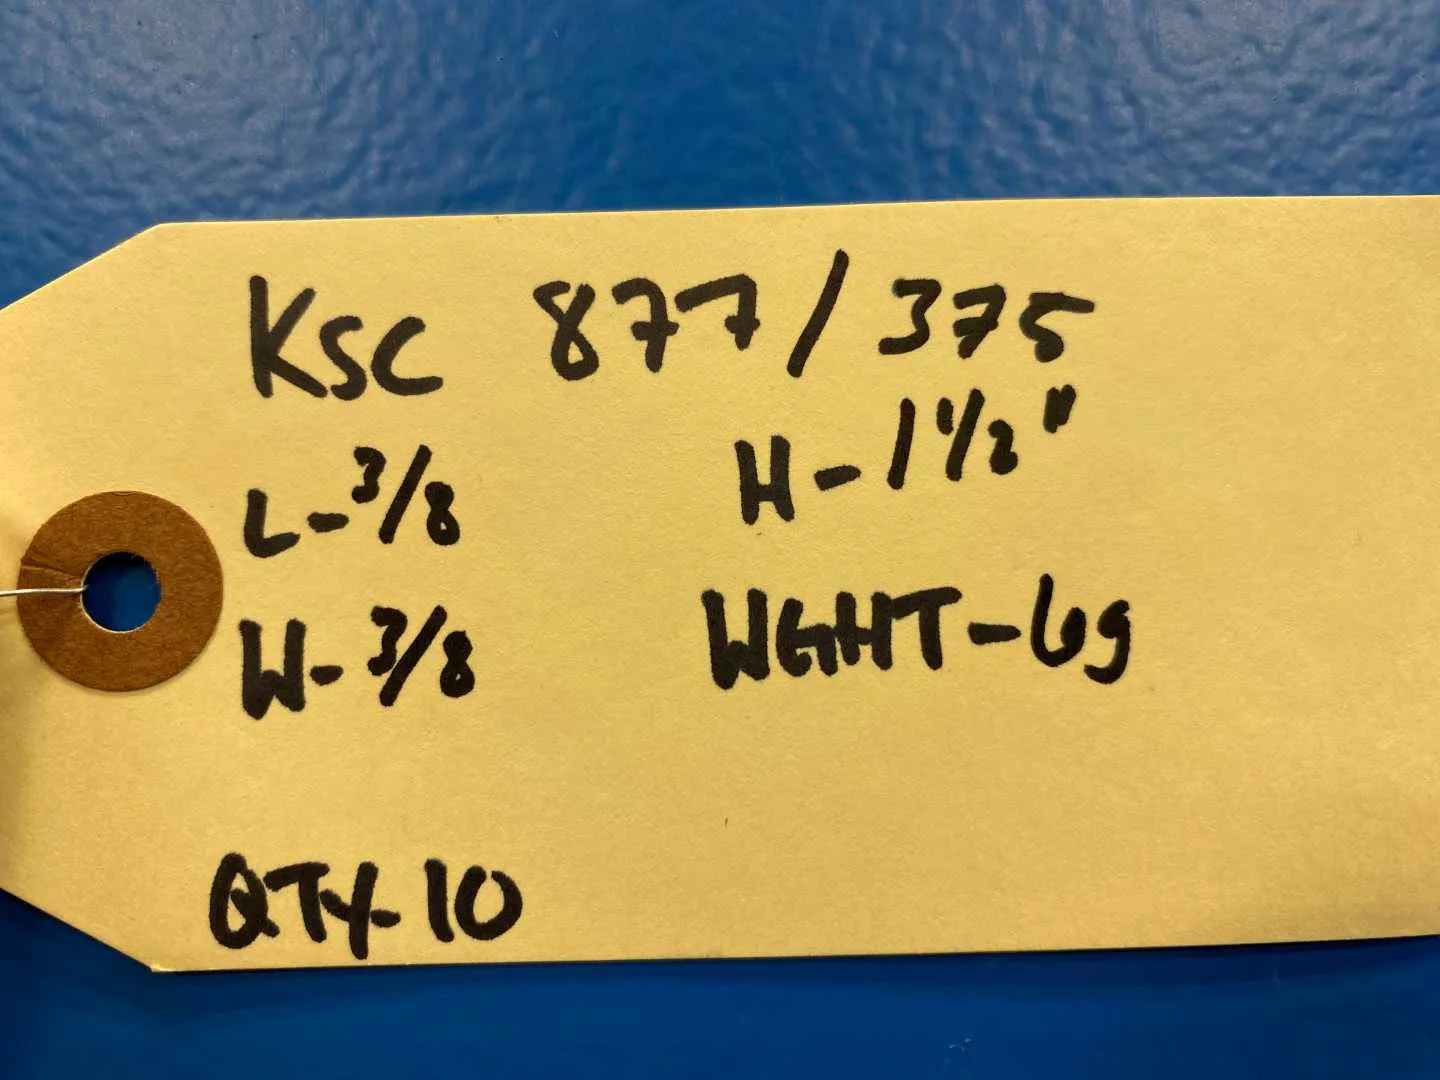 KSC 877/375
L-3/8 H-1 1/2"
W-3/8 WGHT-6g
QTY-10